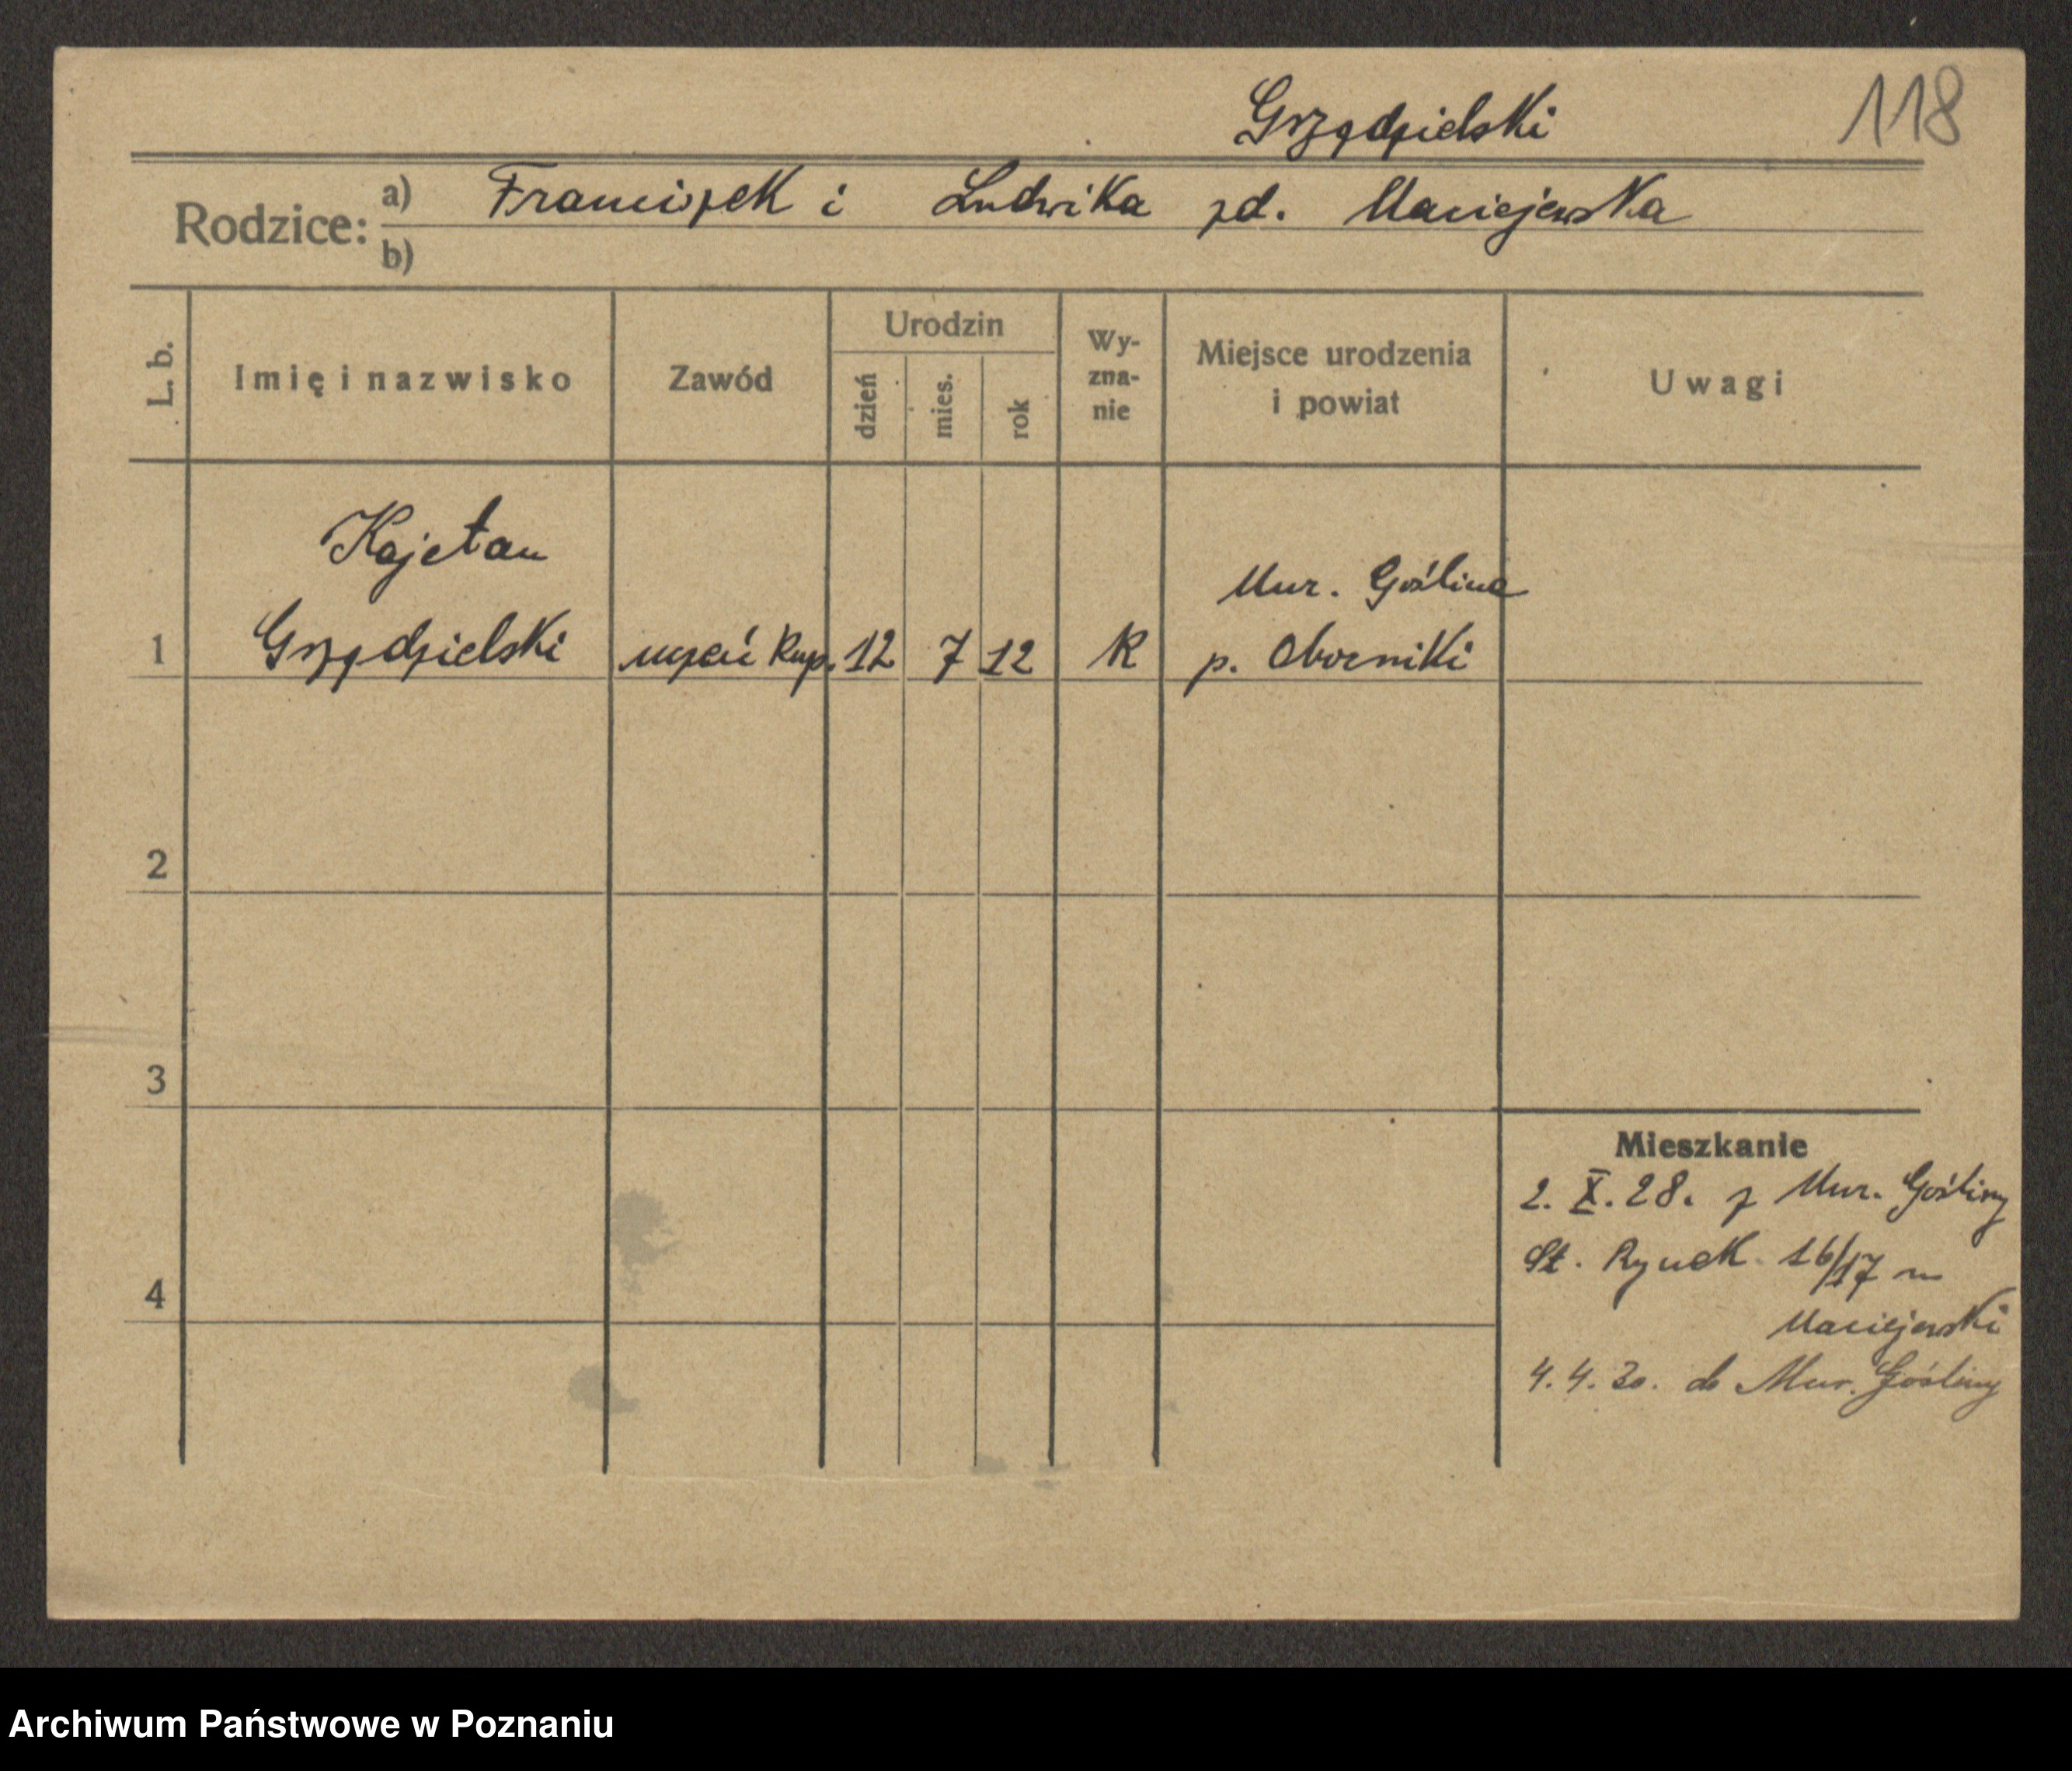 Grzędzielski 118
Rodzice: a) Franciszek i Ludwika zd. Maciejewska
b)
L. b. Imię i nazwisko Zawód Urodzin dzień mies. rok Wy-zna-nie Miejsce urodzenia i powiat Uwagi
Kajetan Mur. Goślina
1 Grzędzielski uczeń kup. 12 7 12 k p. Oborniki
2
3
Mieszkanie
2. X. 28. z Mur. Gośliny
4 St. Rynek 16/17 m
Maciejewski
4. 4. 30. do Mur. Gośliny
Archiwum Państwowe w Poznaniu